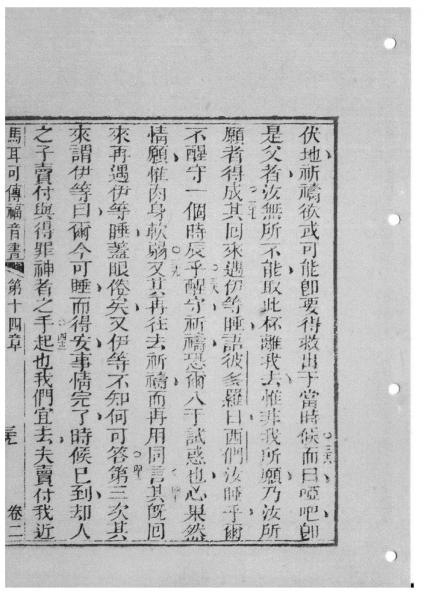 伏地祈禱欲或可能卽要得救出于當時候而曰啞吧卽
三六
是父者汝無所不能取此杯離我去惟非我所願乃汝所
願者得成其回來遇伊等睡語彼多羅曰西們汝睡乎爾
三七
不醒守一個時辰乎醒守祈禱恐爾入于試惑也心果然
三八
情願惟肉身軟弱又其再往去祈禱而再用同言其既回
三九
來再遇伊等睡蓋眼倦矣又伊等不知何可答第三次其
來謂伊等曰爾今可睡而得安事情完了時候已到却人
之子賣付與得罪神者之手起也我們宜去夫賣付我近
四二
馬耳可傳福音書 第十四章 卷二